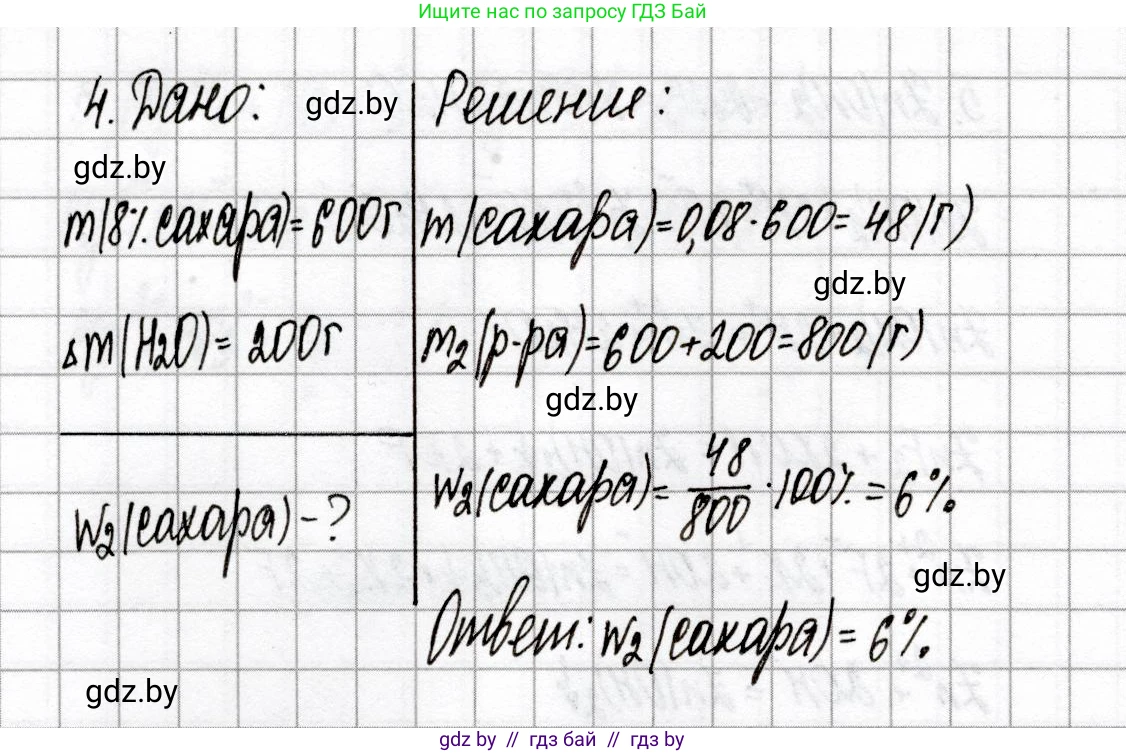 Ищите нас по запросу ГДЗ Бай
4. Дано:
gdz.by
Решение:
gdz.by
m(8% сахара)=600г
m(сахара)=0,08·600=48(г)
gdz.by
∆m(H₂O)=200г
m₂(р-ра)=600+200=800(г)
gdz.by
w₂(сахара)=48/800·100%=6%.
w₂(сахара)-?
gdz.by
Ответ: w₂(сахара)=6%.
gdz.by
gdz by // гдз бай // гдз by